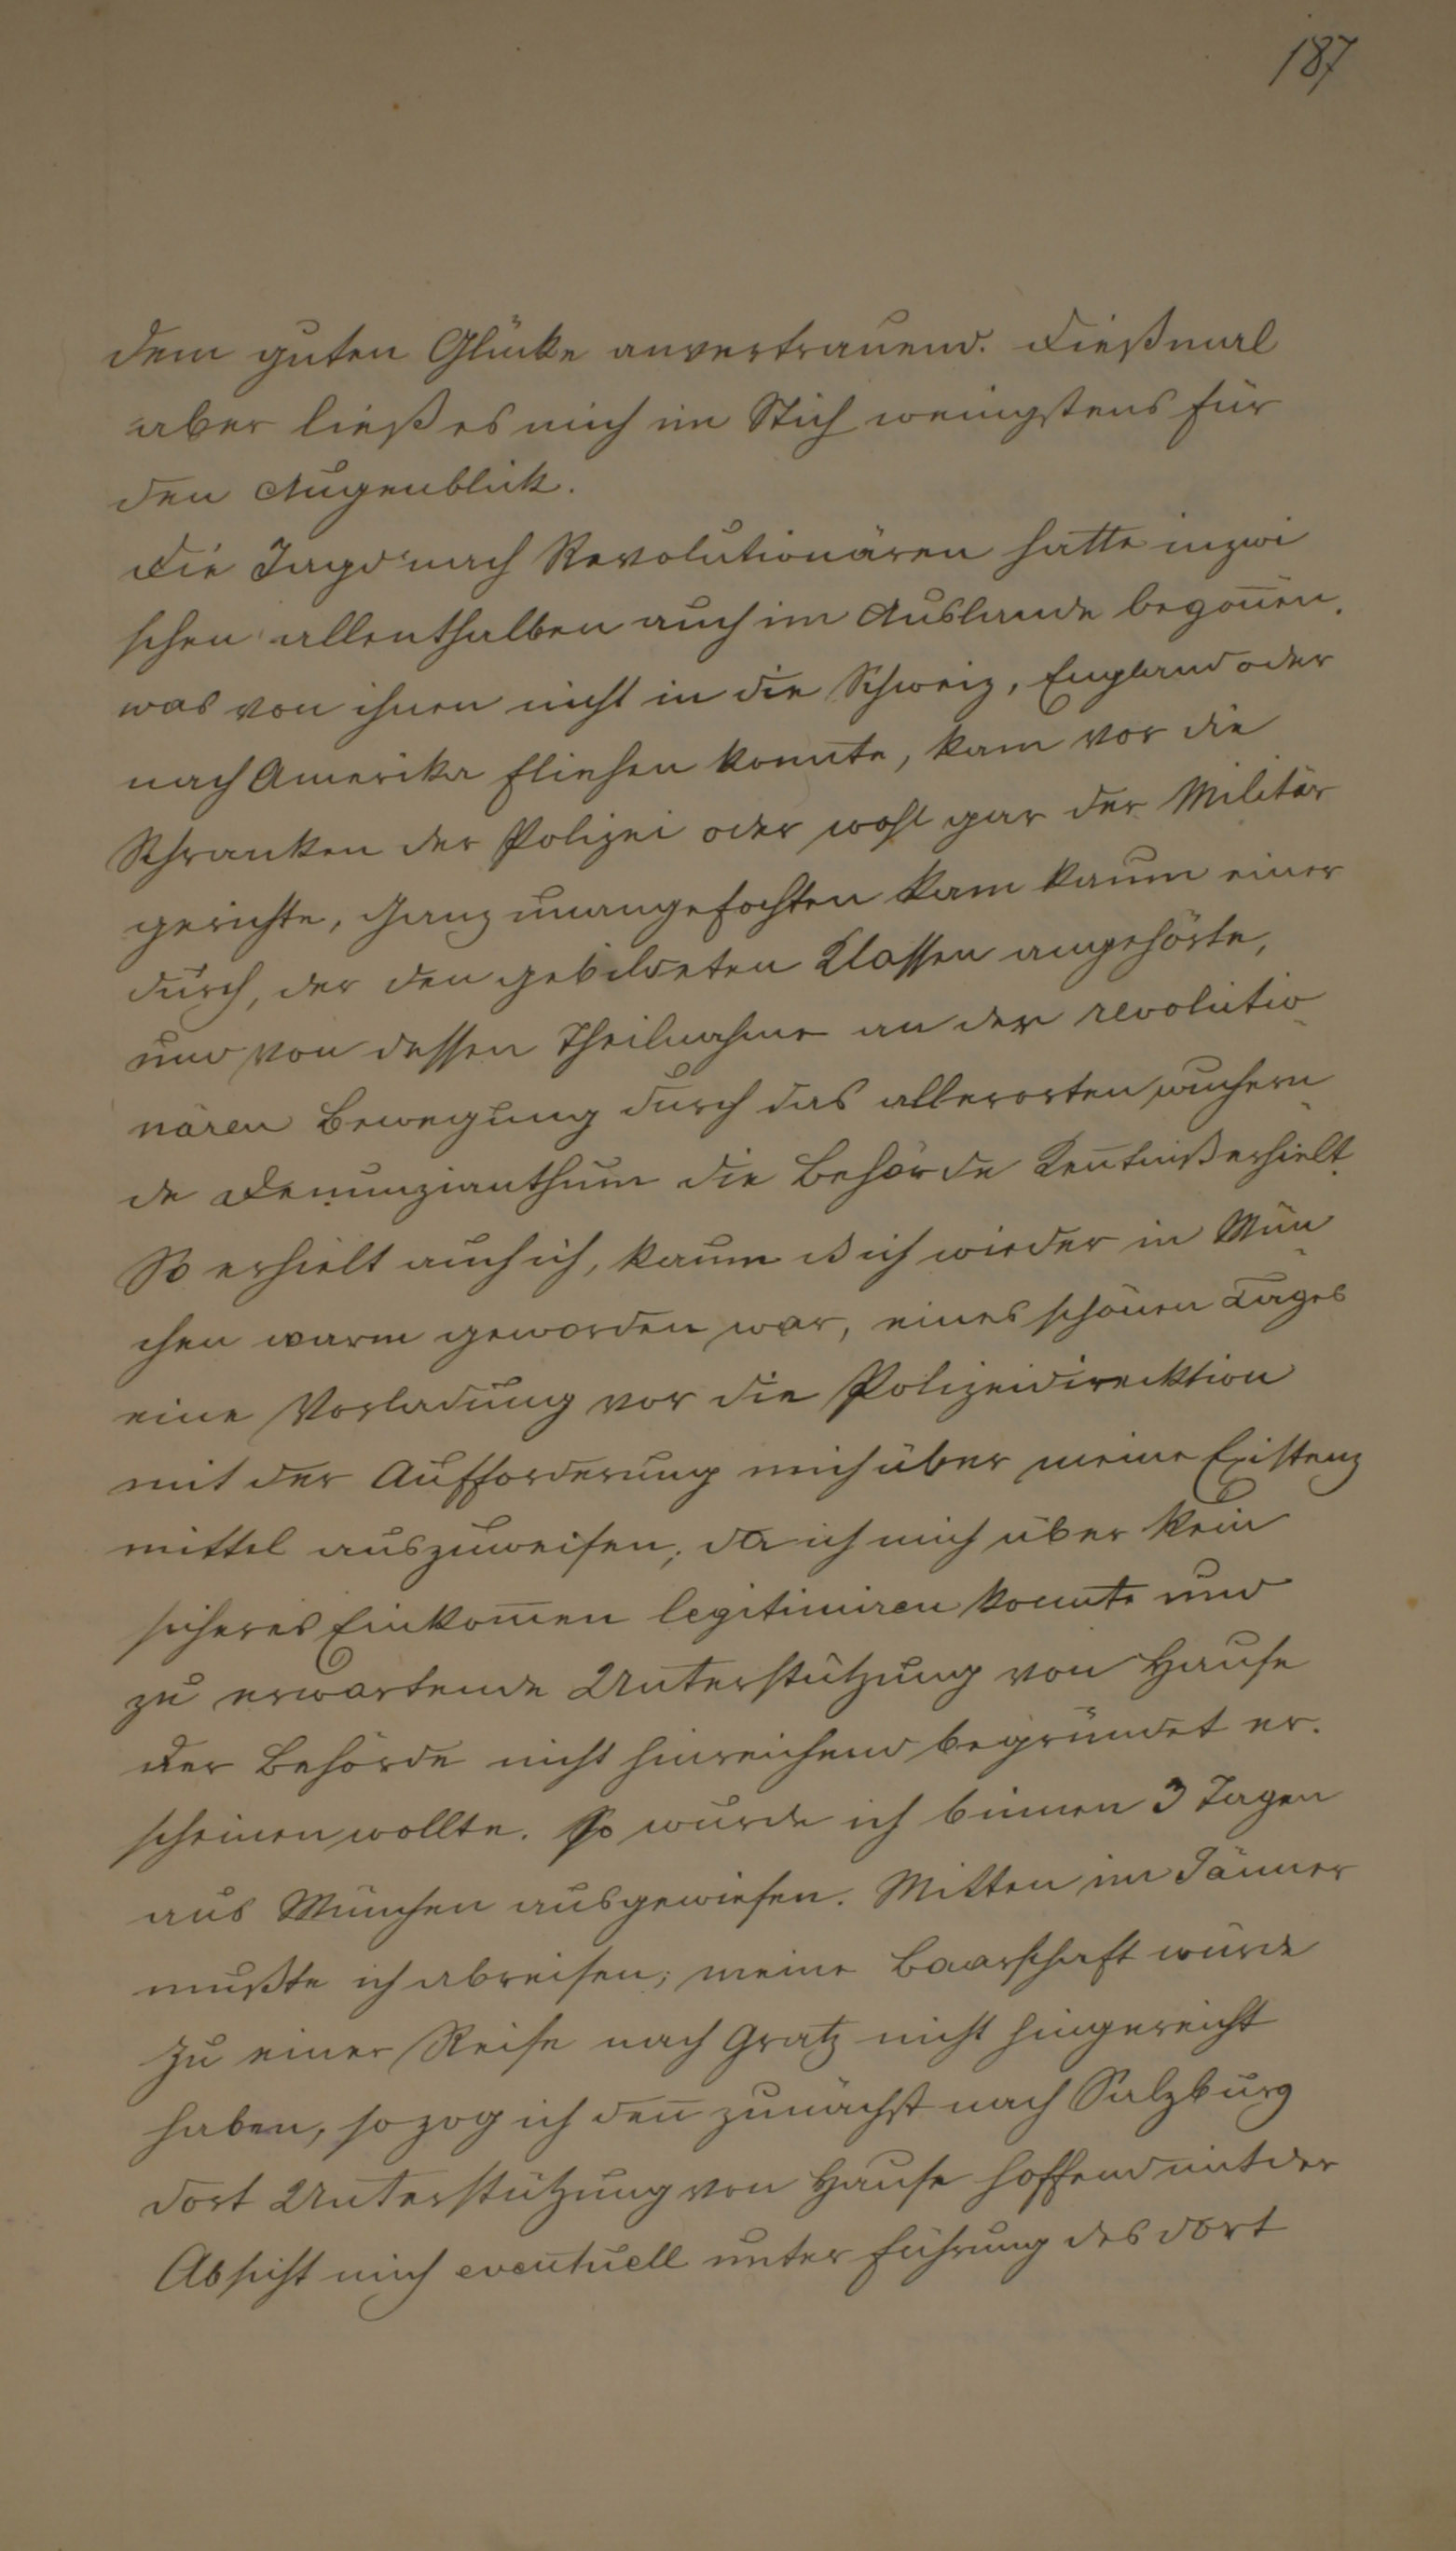 187
dem guten Glücke anvertrauend. Dießmal
aber ließ es mich im Stich wenigstens für
den Augenblick.
Die Jagd nach Revolutionären hatte inzwi
schen allenthalben auch im Auslande begon̄en.
was von ihnen nicht in die Schweiz, England oder
nach Amerika fliehen konnte, kam vor die
Schranken der Polizei oder wohl gar der Militär
gerichte, Ganz unangefochten kam kaum einer
durch, der den gebildeten Klassen angehörte,
und von dessen Theilnahme an der revolutio
nären Bewegung durch das allerorten wuchern
de Denunzianthum die Behörde Ken̄tniß erhielt.
So erhielt auch ich, kaum ich wieder in Mün
chen warm geworden war, eines schönen Tages
eine Vorladung vor die Polizeidirecktion
mit der Aufforderung mich über meine Existenz
mittel auszuweisen; da ich mich über kein
sicheres Einkom̄en legitimiren konnte und
zu erwartende Unterstützung von Hause
der Behörde nicht hinreichend begründet er.
scheinen wollte. So wurde ich binnen 3 Tagen
aus München ausgewiesen. Mitten im Jänner
mußte ich abreisen; meine Baarschaft würde
zu einer Reise nach Gratz nicht hingereicht
haben, so zog ich den̄ zunächst nach Salzburg
dort Unterstützung von Hause hoffend mit der
Absicht mich eventuell unter Führung des dort